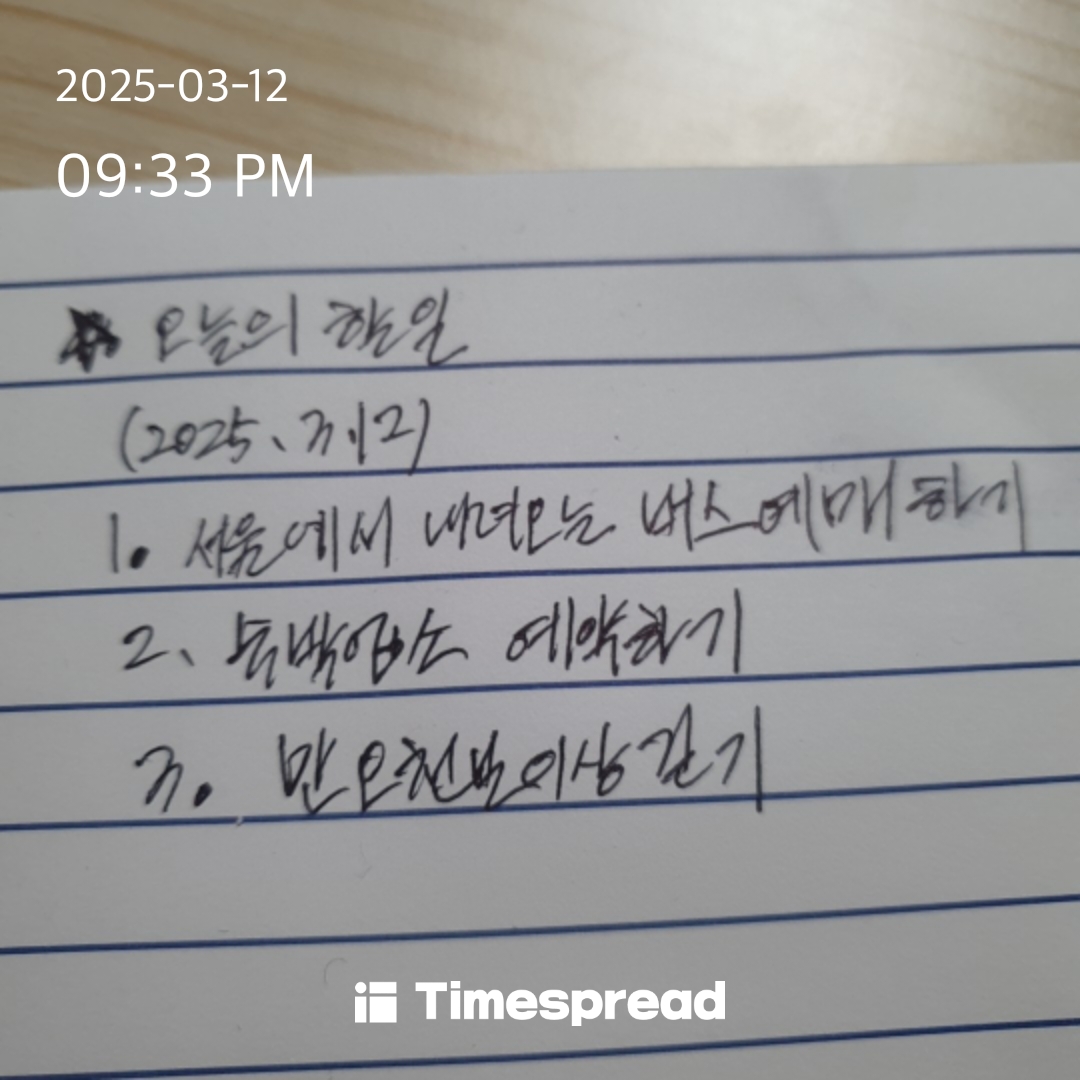 2025-03-12
09:33 PM
오늘의 할일
(2025. 3.12)
1. 서울에서 내려오는 버스예매하기
2. 숙박업소 예약하기
3. 만오천보이상걷기
Timespread